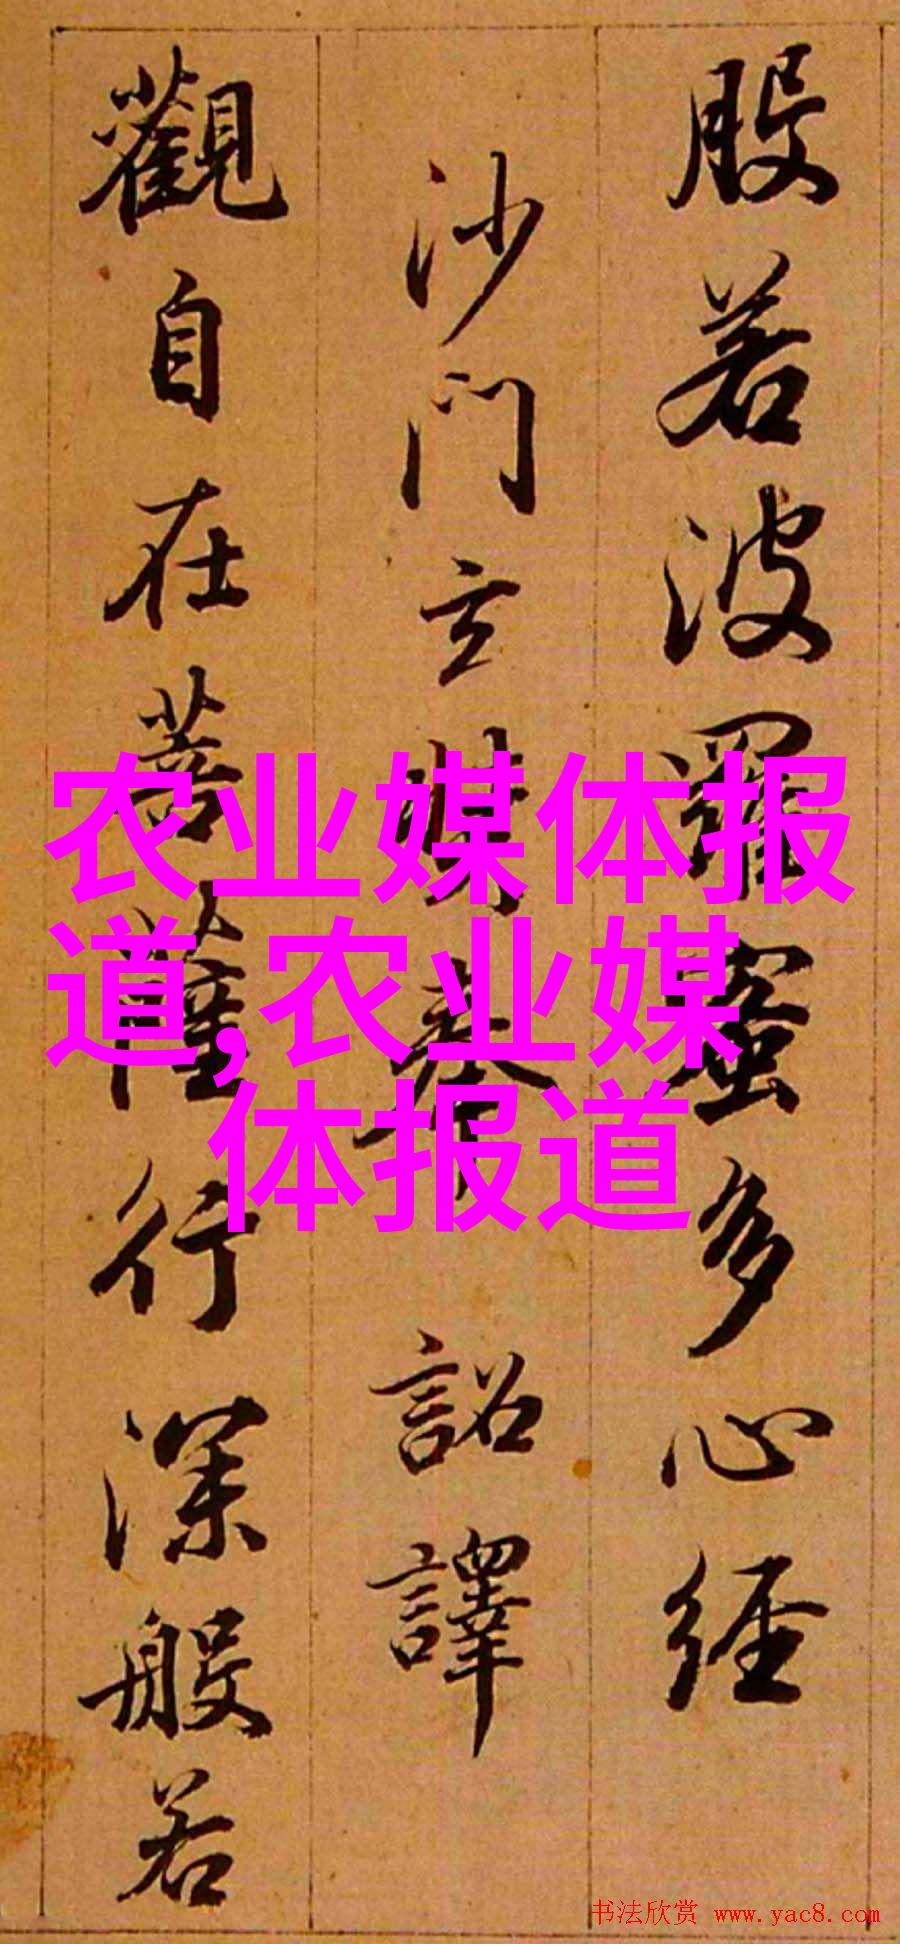 般若波羅蜜多心經
沙門玄奘奉 詔譯
觀自在菩薩行深般若
农业媒体报
道,农业媒
体报道
书法欣赏 www.yac8.com